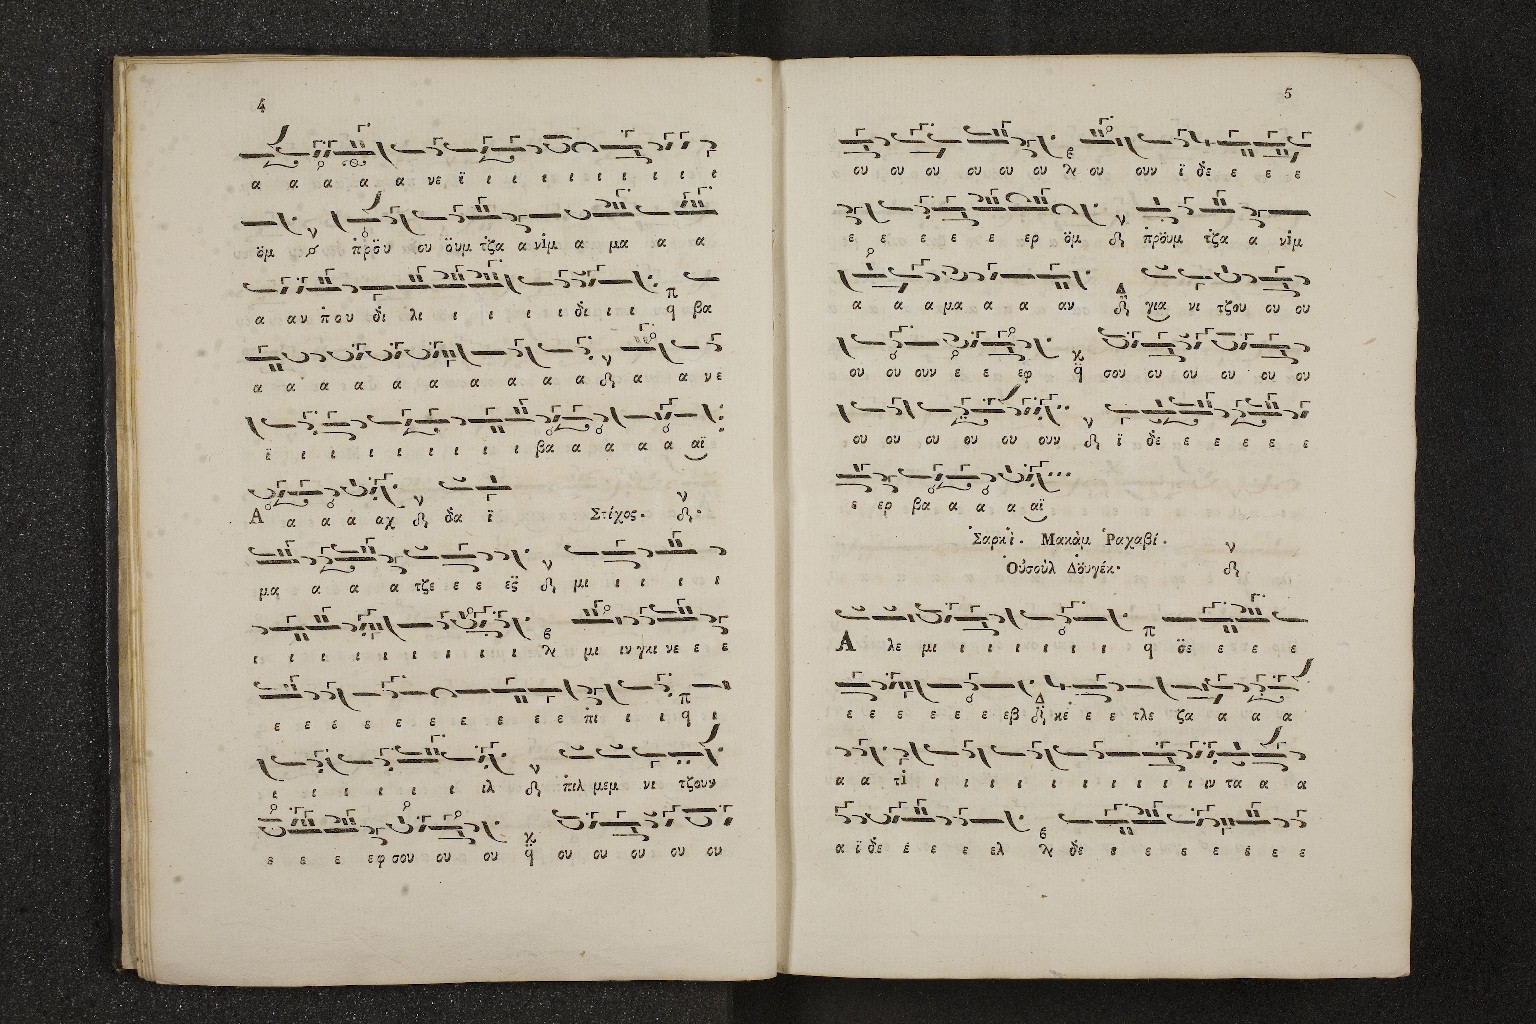 4
α α α α α νε ϊ ι ι ι ι ι ι ι ι
ὄμ π̇ρόυ ου ὄυμ τζα α νὶμ α μα α α
α αν π̇ου δ̇ι λι ι ι ι ι δι ι ι π q̈ βα
α α α α α α α α α α ν α α νε
ϊ ι ι ι ι ι ι ι βα α α α α αϊ
Α α α α αχ ν δα ϊ Στίχος. ν
μα α α α τζε ε ε εξ̈ ν μι ι ι ι ι
ι ι ι ι ι ι ι ι ι μι ιν γκι νε ε ε
ε ε ε ε ε ε ε ε ε ε π̇ι ι ι π q̈ ι
ι ι ι ι ι ι ιλ ν π̇ιλ μεμ νι τζουν
ε ε ε εφ σου ου ου κ q̈ ου ου ου ου ου
5
ου ου ου ου ου ου ου ουν ϊ δε ε ε ε
ε ε ε ε ε ερ ὄμ ν π̇ρόυμ τζα α νὶμ
α α α μα α α αν Δ για νι τζου ου ου
ου ου ουν ε ε εφ κ q̈ σου ου ου ου ου ου
ου ου ου ου ου ουν ν ϊ δε ε ε ε ε ε
ε ερ βα α α α αϊ
Σαρκὶ. Μακὰμ Ῥαχαβί. ν
Οὐσοὺλ Δόυγέκ.
Α λε μι ι ι ι ι ι ι π q̈ σ̈ε ε ε ε
ε ε ε ε ε ε εβ Δ κέ ε ε τλε ζα α α α
α α τὶ ι ι ι ι ι ι ι ι ι ιν τα α α
α ϊ δε έ ε ε ελ δε ε ε ε ε ε ε ε